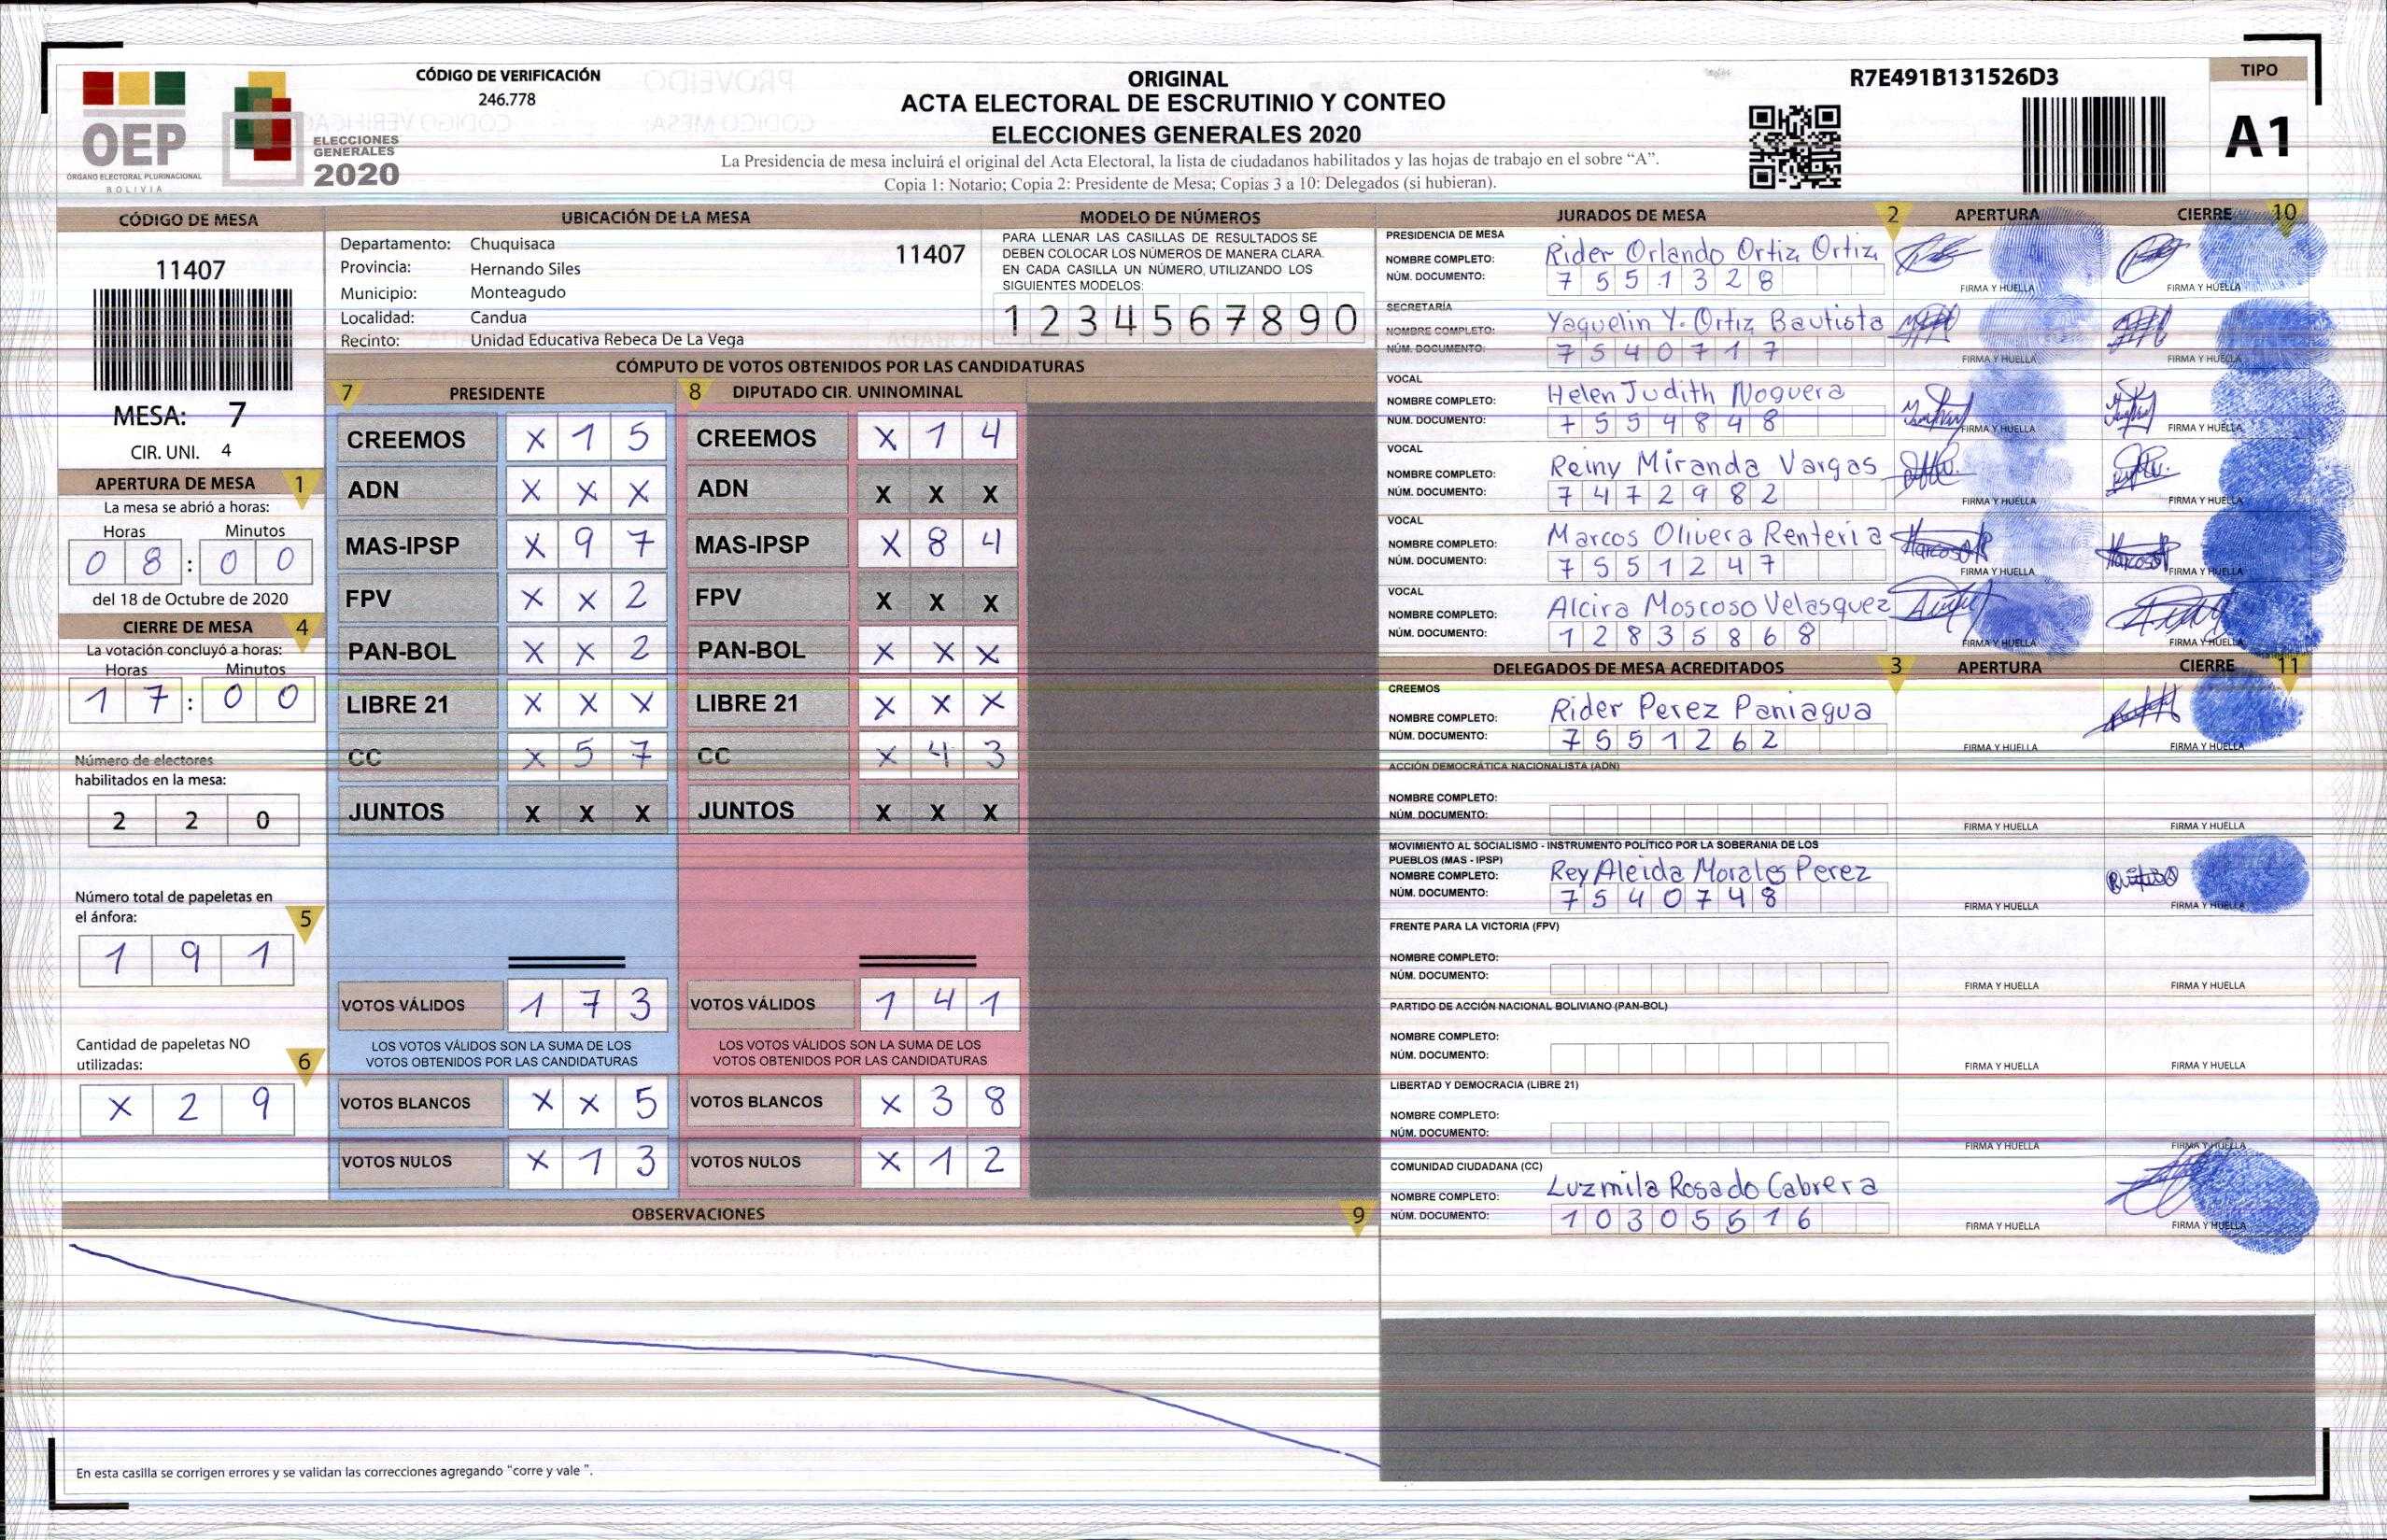 CÓDIGO DE VERIFICACIÓN
246.778
OEP
ÓRGANO ELECTORAL PLURINACIONAL
BOLIVIA
ELECCIONES
GENERALES
2020
ORIGINAL
ACTA ELECTORAL DE ESCRUTINIO Y CONTEO
ELECCIONES GENERALES 2020
La Presidencia de mesa incluirá el original del Acta Electoral, la lista de ciudadanos habilitados y las hojas de trabajo en el sobre “A”.
Copia 1: Notario; Copia 2: Presidente de Mesa; Copias 3 a 10: Delegados (si hubieran).
R7E491B131526D3
TIPO
A1
CÓDIGO DE MESA
11407
MESA: 7
CIR. UNI. 4
APERTURA DE MESA 1
La mesa se abrió a horas:
Horas Minutos
0 8 : 0 0
del 18 de Octubre de 2020
CIERRE DE MESA 4
La votación concluyó a horas:
Horas Minutos
1 7 : 0 0
Número de electores
habilitados en la mesa:
2 2 0
Número total de papeletas en
el ánfora: 5
1 9 1
Cantidad de papeletas NO
utilizadas: 6
X 2 9
UBICACIÓN DE LA MESA
Departamento: Chuquisaca 11407
Provincia: Hernando Siles
Municipio: Monteagudo
Localidad: Candua
Recinto: Unidad Educativa Rebeca De La Vega
MODELO DE NÚMEROS
PARA LLENAR LAS CASILLAS DE RESULTADOS SE
DEBEN COLOCAR LOS NÚMEROS DE MANERA CLARA.
EN CADA CASILLA UN NÚMERO, UTILIZANDO LOS
SIGUIENTES MODELOS:
1 2 3 4 5 6 7 8 9 0
CÓMPUTO DE VOTOS OBTENIDOS POR LAS CANDIDATURAS
7 PRESIDENTE 8 DIPUTADO CIR. UNINOMINAL
CREEMOS X 1 5 CREEMOS X 1 4
ADN X X X ADN X X X
MAS-IPSP X 9 7 MAS-IPSP X 8 4
FPV X X 2 FPV X X X
PAN-BOL X X 2 PAN-BOL X X X
LIBRE 21 X X X LIBRE 21 X X X
CC X 5 7 CC X 4 3
JUNTOS X X X JUNTOS X X X
VOTOS VÁLIDOS 1 7 3 VOTOS VÁLIDOS 1 4 1
LOS VOTOS VÁLIDOS SON LA SUMA DE LOS LOS VOTOS VÁLIDOS SON LA SUMA DE LOS
VOTOS OBTENIDOS POR LAS CANDIDATURAS VOTOS OBTENIDOS POR LAS CANDIDATURAS
VOTOS BLANCOS X X 5 VOTOS BLANCOS X 3 8
VOTOS NULOS X 1 3 VOTOS NULOS X 1 2
OBSERVACIONES 9
En esta casilla se corrigen errores y se validan las correcciones agregando “corre y vale ”.
JURADOS DE MESA 2 APERTURA CIERRE 10
PRESIDENCIA DE MESA
NOMBRE COMPLETO: Rider Orlando Ortiz Ortiz
NÚM. DOCUMENTO: 7 5 5 1 3 2 8
FIRMA Y HUELLA FIRMA Y HUELLA
SECRETARÍA
NOMBRE COMPLETO: Yaquelin Y. Ortiz Bautista
NÚM. DOCUMENTO: 7 5 4 0 7 1 7
FIRMA Y HUELLA FIRMA Y HUELLA
VOCAL
NOMBRE COMPLETO: Helen Judith Noguera
NÚM. DOCUMENTO: 7 5 5 4 8 4 8
FIRMA Y HUELLA FIRMA Y HUELLA
VOCAL
NOMBRE COMPLETO: Reiny Miranda Vargas
NÚM. DOCUMENTO: 7 4 7 2 9 8 2
FIRMA Y HUELLA FIRMA Y HUELLA
VOCAL
NOMBRE COMPLETO: Marcos Olivera Renteria
NÚM. DOCUMENTO: 7 5 5 1 2 4 7
FIRMA Y HUELLA FIRMA Y HUELLA
VOCAL
NOMBRE COMPLETO: Alcira Moscoso Velasquez
NÚM. DOCUMENTO: 1 2 8 3 5 8 6 8
FIRMA Y HUELLA FIRMA Y HUELLA
DELEGADOS DE MESA ACREDITADOS 3 APERTURA CIERRE 11
CREEMOS
NOMBRE COMPLETO: Rider Perez Paniagua
NÚM. DOCUMENTO: 7 5 5 1 2 6 2
FIRMA Y HUELLA FIRMA Y HUELLA
ACCIÓN DEMOCRÁTICA NACIONALISTA (ADN)
NOMBRE COMPLETO:
NÚM. DOCUMENTO:
FIRMA Y HUELLA FIRMA Y HUELLA
MOVIMIENTO AL SOCIALISMO - INSTRUMENTO POLÍTICO POR LA SOBERANIA DE LOS
PUEBLOS (MAS - IPSP)
NOMBRE COMPLETO: Rey Aleida Morales Perez
NÚM. DOCUMENTO: 7 5 4 0 7 4 8
FIRMA Y HUELLA FIRMA Y HUELLA
FRENTE PARA LA VICTORIA (FPV)
NOMBRE COMPLETO:
NÚM. DOCUMENTO:
FIRMA Y HUELLA FIRMA Y HUELLA
PARTIDO DE ACCIÓN NACIONAL BOLIVIANO (PAN-BOL)
NOMBRE COMPLETO:
NÚM. DOCUMENTO:
FIRMA Y HUELLA FIRMA Y HUELLA
LIBERTAD Y DEMOCRACIA (LIBRE 21)
NOMBRE COMPLETO:
NÚM. DOCUMENTO:
FIRMA Y HUELLA FIRMA Y HUELLA
COMUNIDAD CIUDADANA (CC)
NOMBRE COMPLETO: Luzmila Rosado Cabrera
NÚM. DOCUMENTO: 1 0 3 0 5 5 1 6
FIRMA Y HUELLA FIRMA Y HUELLA